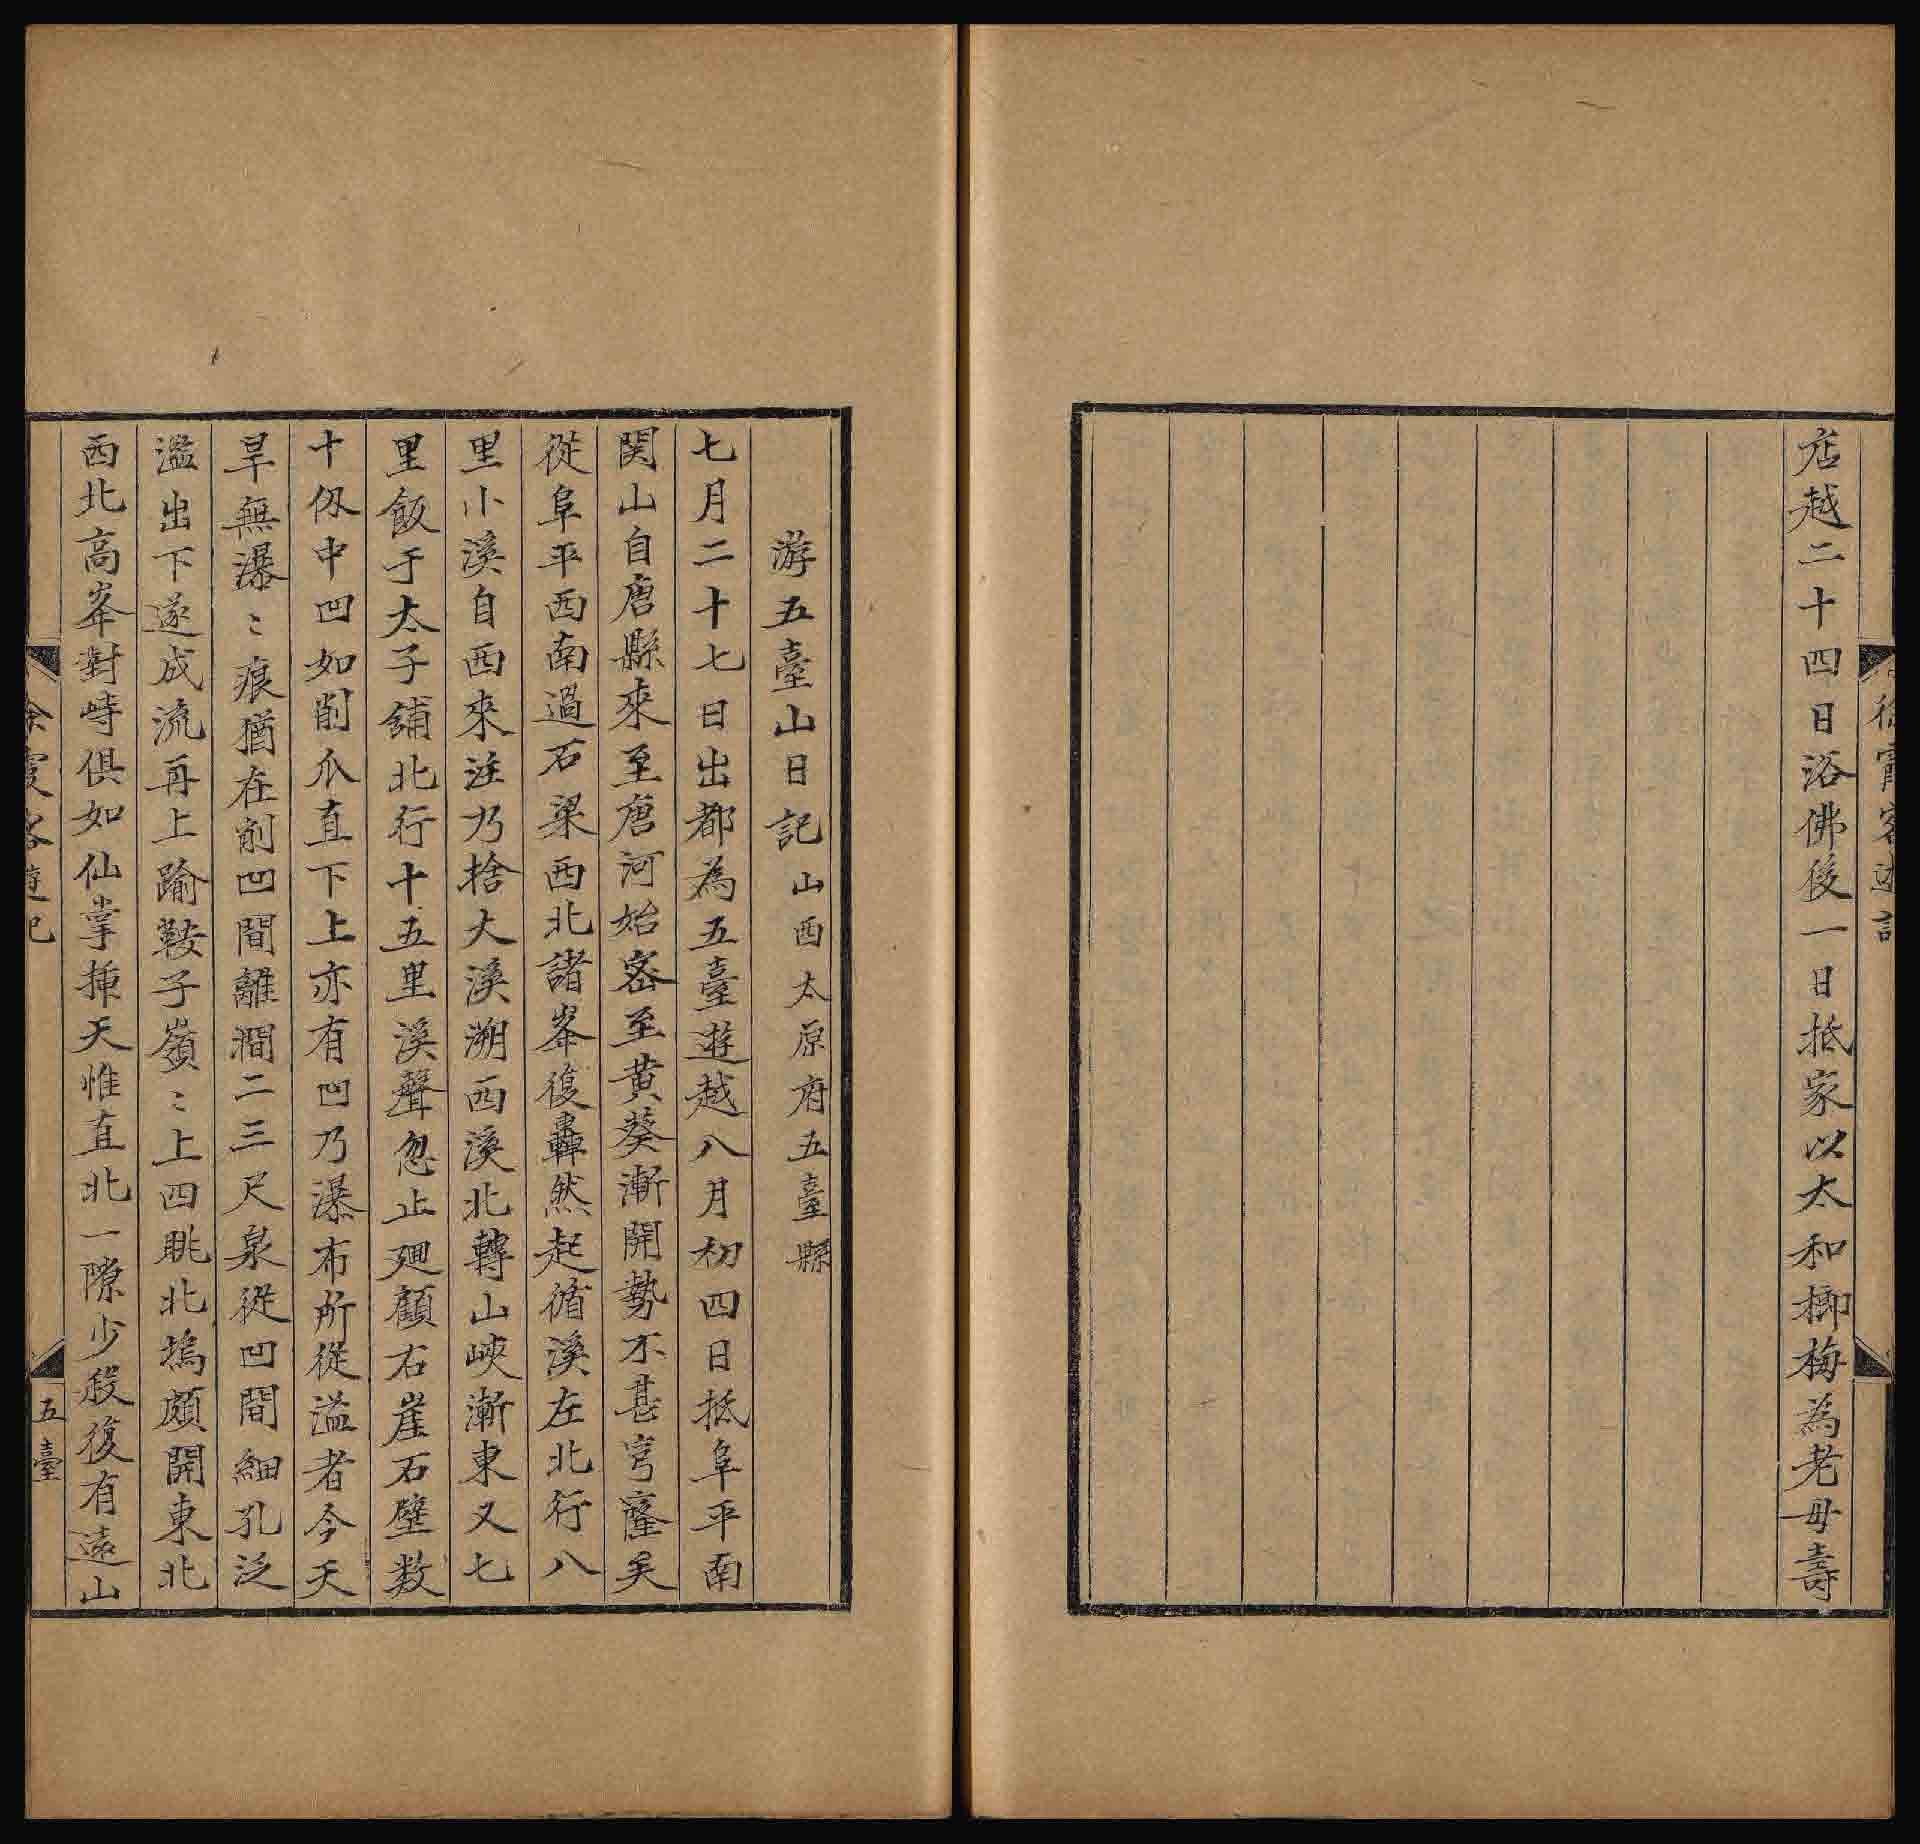 徐霞客遊記
店越二十四日浴佛後一日抵家以太和榔梅為老母壽
游五臺山日記山西太原府五臺縣
七月二十七日出都為五臺遊越八月初四日抵阜平南
関山自唐縣來至唐河始密至黄葵漸開勢不甚穹窿矣
從阜平西南過石梁西北諸峯復轟然起循溪左北行八
里小溪自西來注乃捨大溪溯西溪北轉山峽漸東又七
里飯于太子舖北行十五里溪聲忽止廻顧右崖石壁数
十仭中凹如削爪直下上亦有凹乃瀑布所從溢者今天
旱無瀑〻痕猶在削凹間離澗二三尺泉從凹間細孔泛
濫出下遂成流再上踰鞍子嶺〻上四眺北塢頗開東北
西北高峯對峙俱如仙掌挿天惟直北一隙少殺復有遠山
徐霞客遊記
五臺